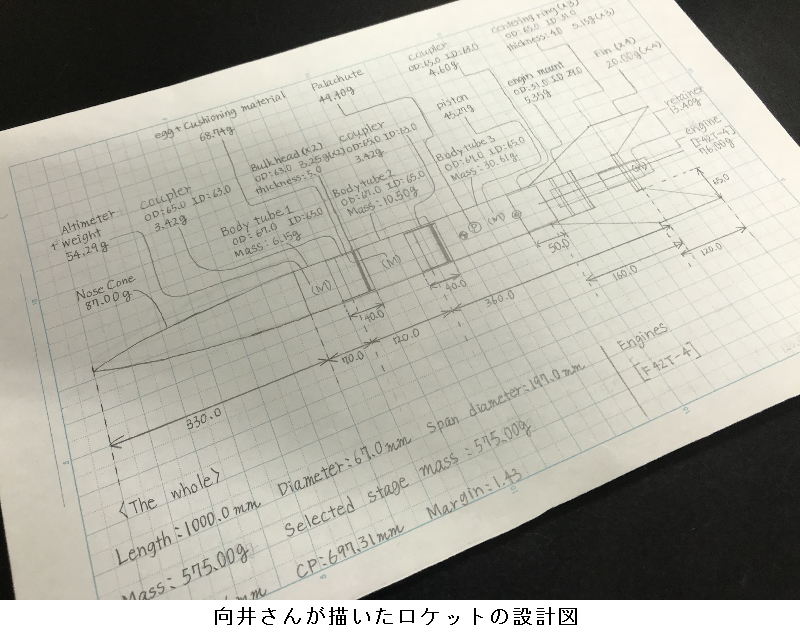 Centering ring (x3)
OD:65.0 ID:31.0
thickness:4.0 5.15g(x3)
Fin (x4)
20.00g(x4)
Coupler
OD:65.0 ID:63.0
4.60g
engin mount
OD:31.0 ID:29.0
5.35g
retainer
13.40g
engine
[F42T-4]
76.00g
Parachute
44.40g
piston
45.27g
egg+Cushioning material
68.74g
Bulkhead(x2)
OD:63.0 3.25g(x2)
thickness:5.0
Coupler
OD:65.0 ID:63.0
3.42g
Body tube 3
OD:67.0 ID:65.0
Mass:30.61g
Body tube 2
OD:67.0 ID:65.0
Mass:10.50g
Coupler
OD:65.0 ID:63.0
3.42g
Body tube 1
OD:67.0 ID:65.0
Mass:6.15g
Altimeter
+ weight
54.29g
Nose Cone
87.00g
(M)
(M)
P
(M)
65.0
50.0
120.0
160.0
40.0
360.0
40.0
120.0
70.0
330.0
Engines
[F42T-4]
〈The whole〉
Length:1000.0mm Diameter:67.0mm Span diameter:197.0mm
Mass:575.00g Selected stage mass:575.00g
CP:697.31mm Margin:1.43
向井さんが描いたロケットの設計図